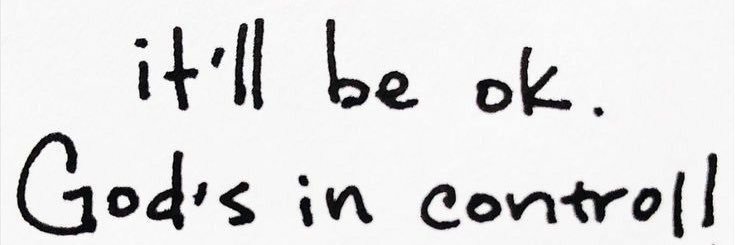 it'll be ok.
God's in controll